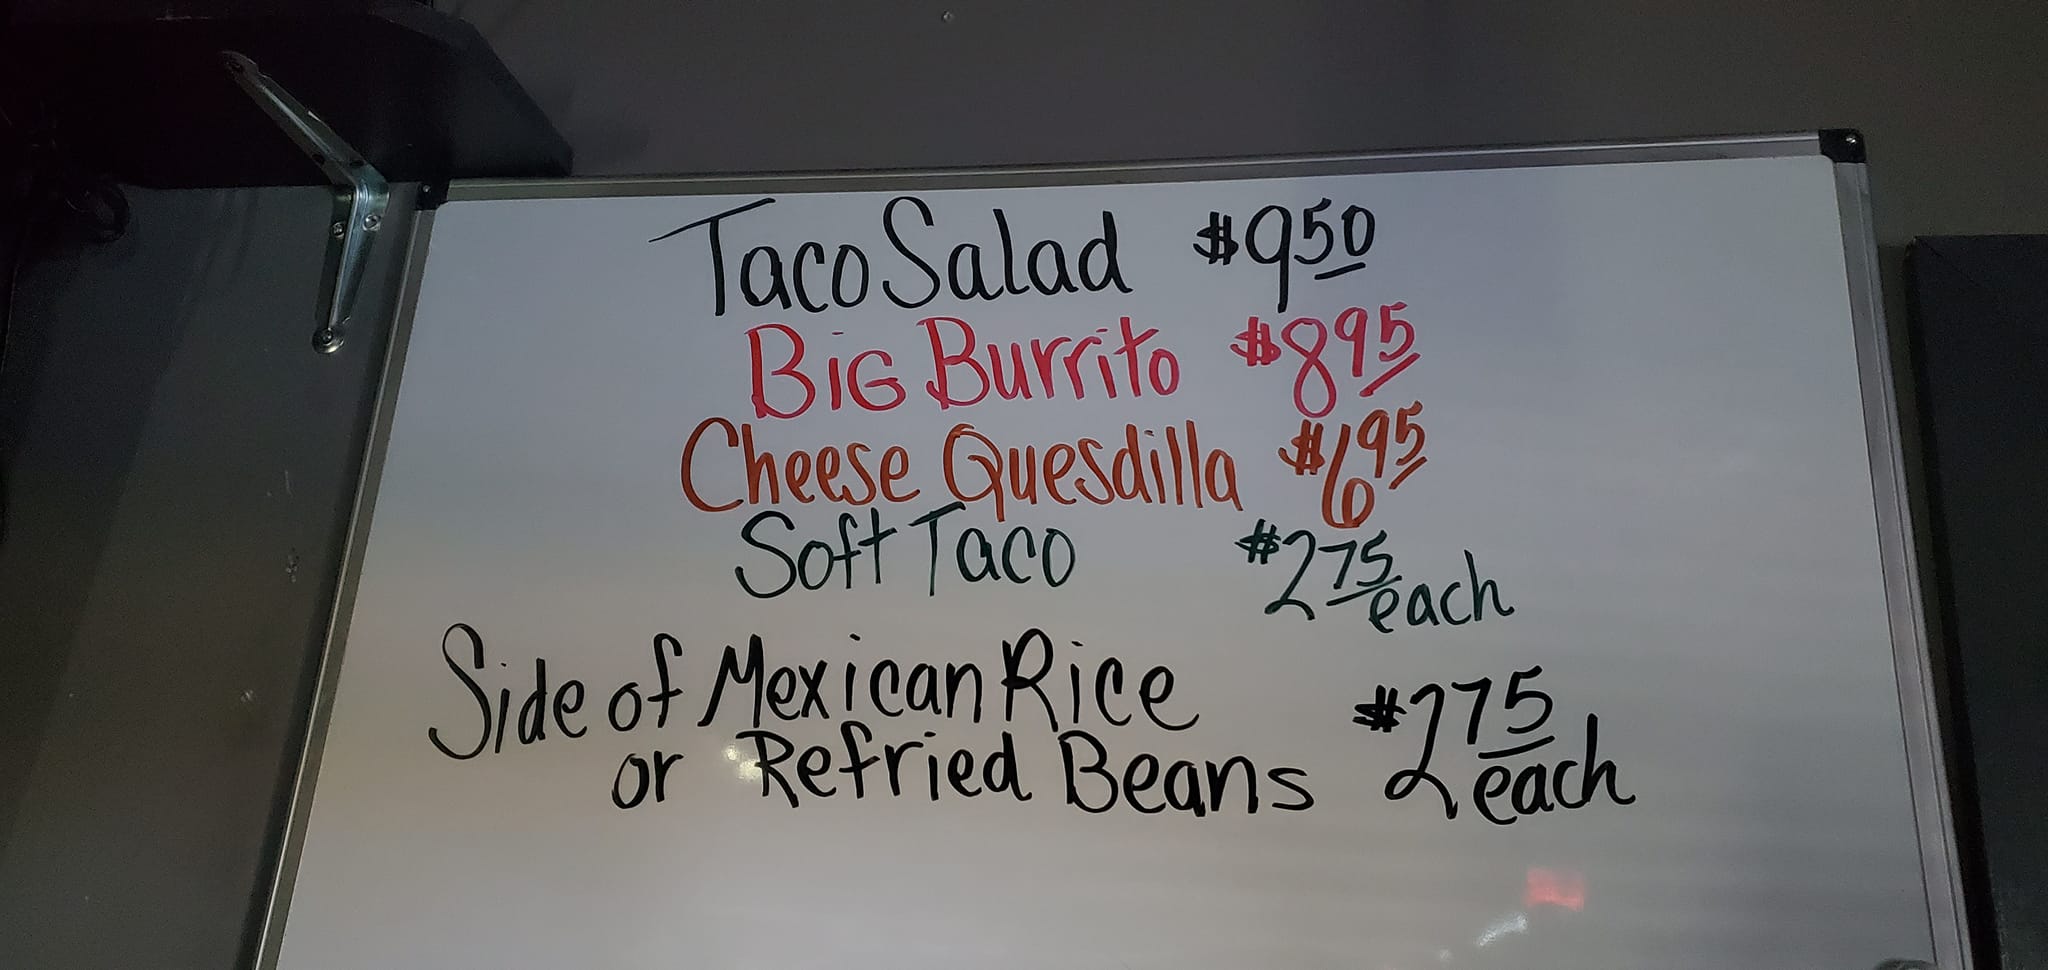 Taco Salad $9.50
Big Burrito $8.95
Cheese Quesdilla $6.95
Soft Taco $2.75 each
Side of Mexican Rice
or Refried Beans $2.75 each